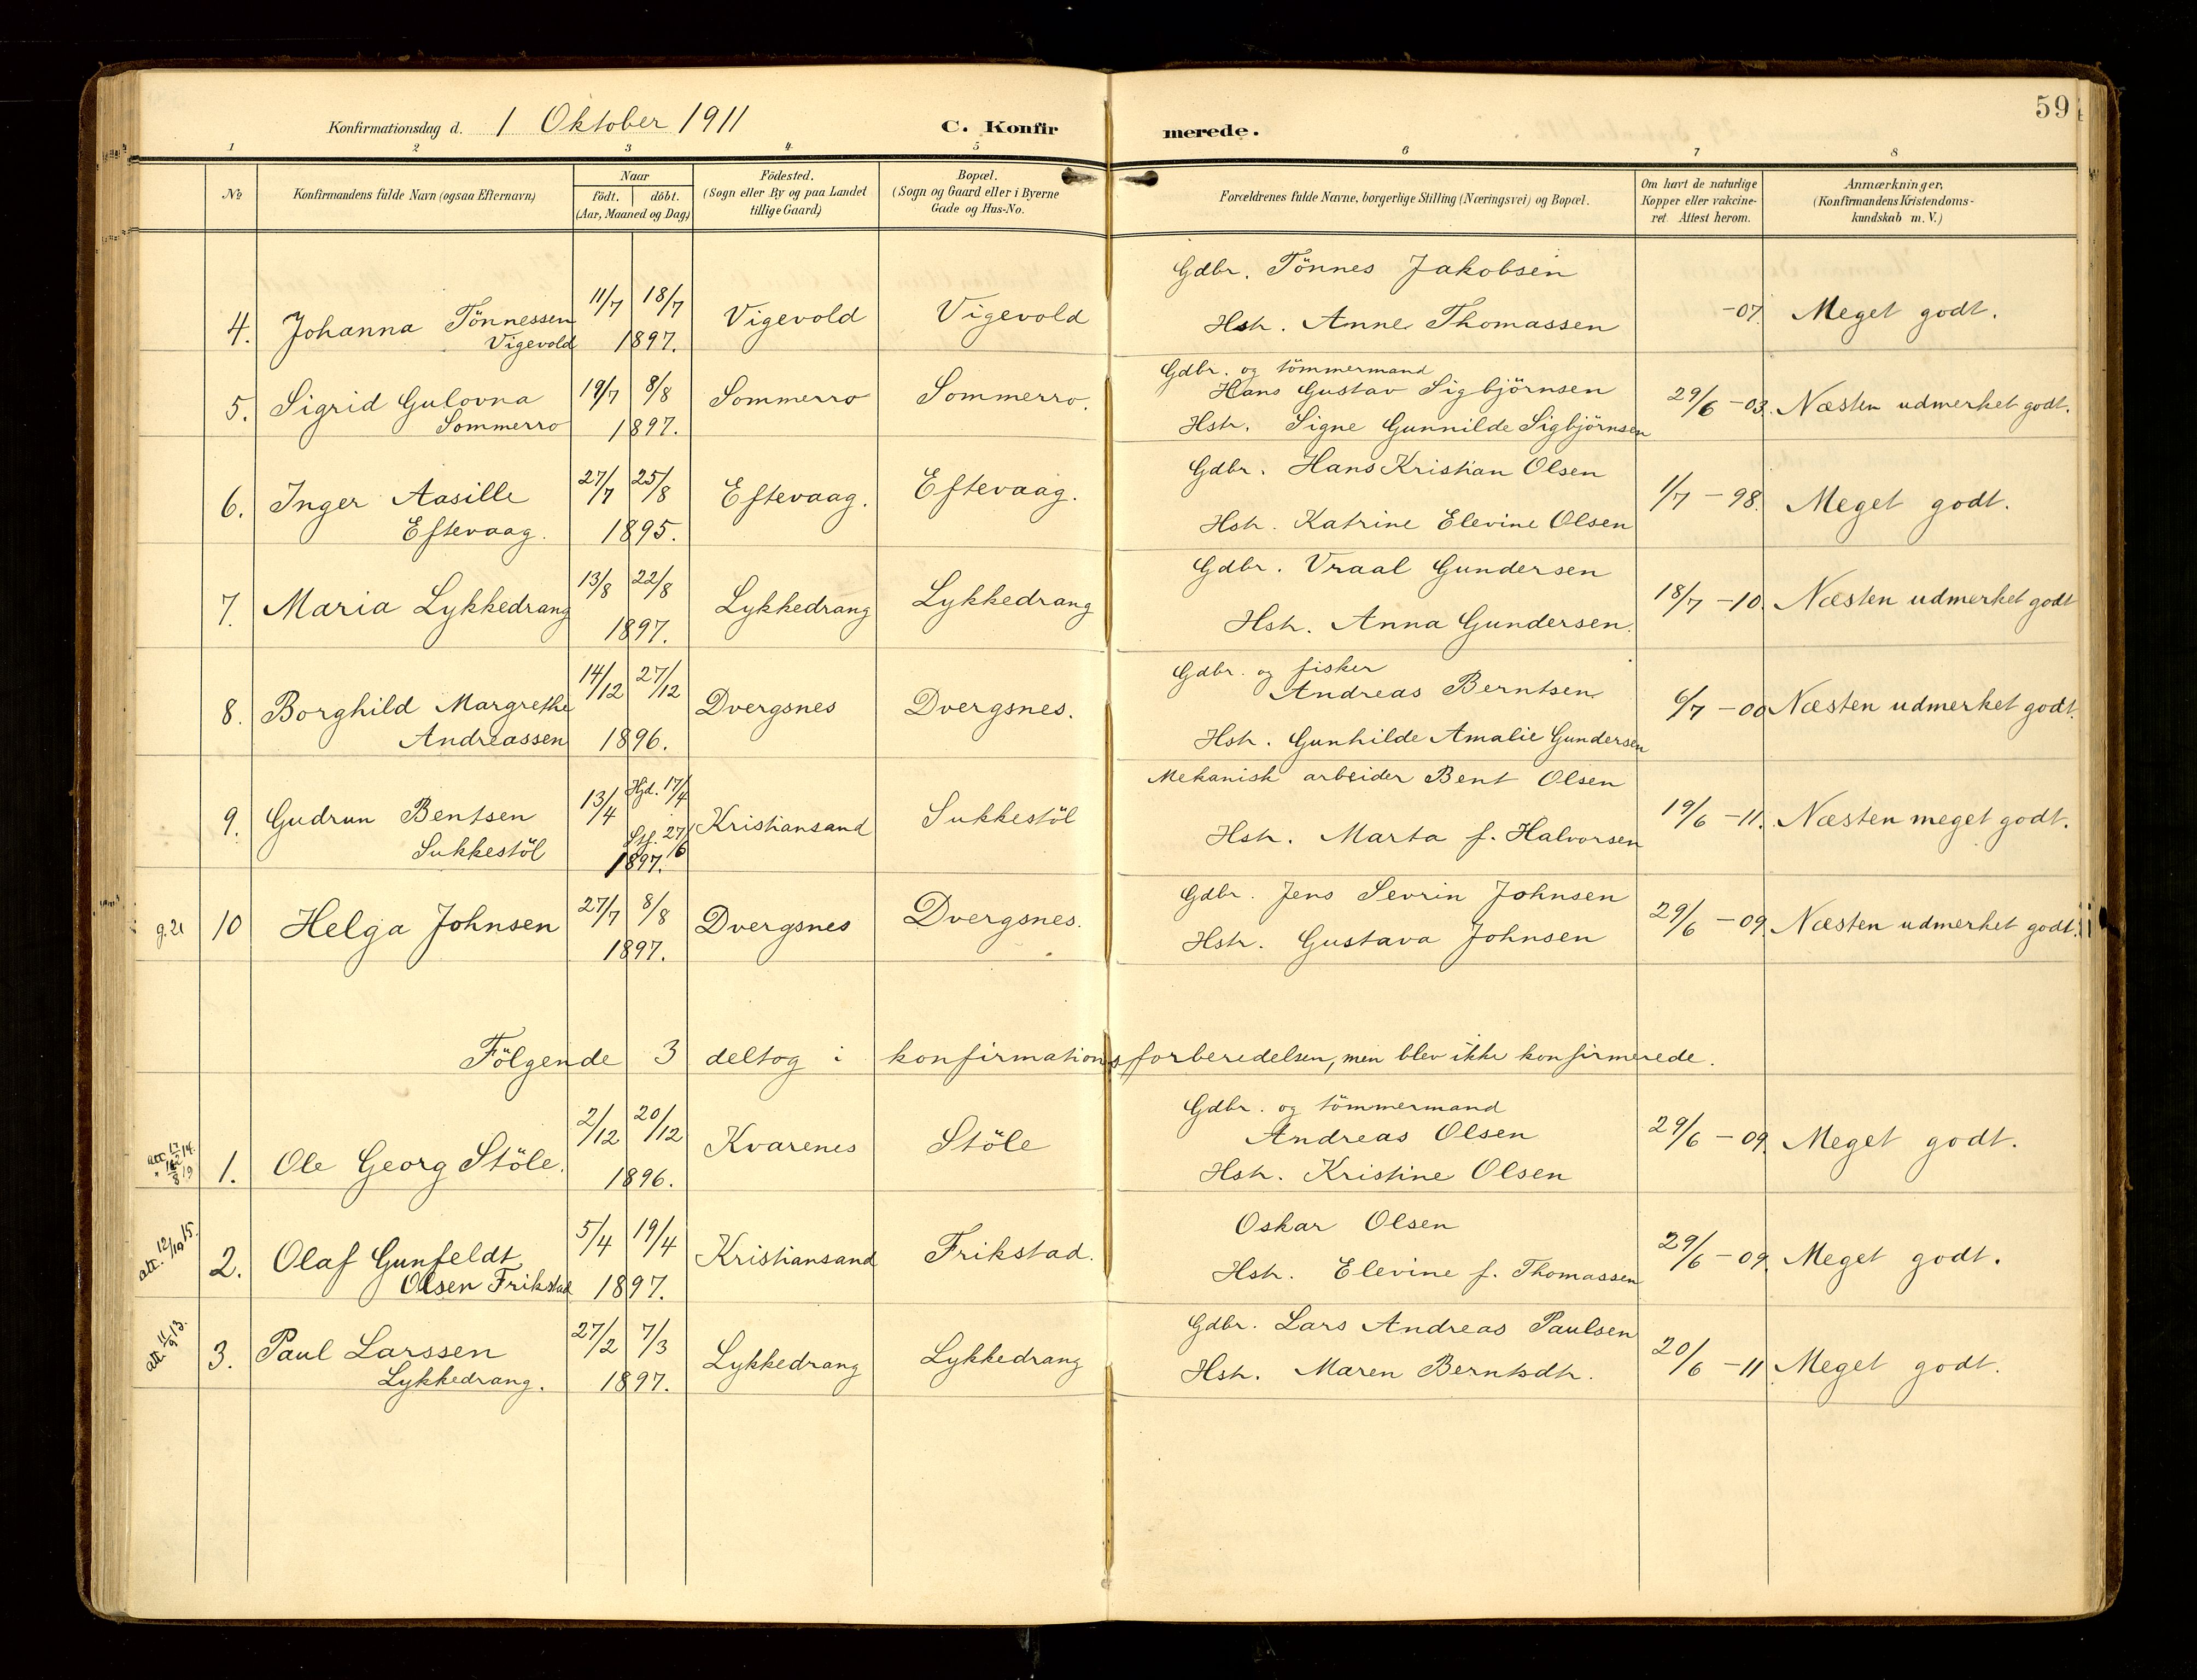 59
Konfirmationsdag d. 1 Oktober 1911
C. Konfirmerede.
1 2 3 4 5 6 7 8
No
Konfirmandens fulde Navn (ogsaa Efternavn)
Naar
födt. döbt.
(Aar, Maaned og Dag)
Födested.
(Sogn eller By og paa Landet
tillige Gaard)
Bopæl.
(Sogn og Gaard eller i Byerne
Gade og Hus-No.
Forældrenes fulde Navne, borgerlige Stilling (Næringsvei) og Bopæl.
Om havt de naturlige
Kopper eller vakcine-
ret. Attest herom.
Anmærkninger,
(Konfirmandens Kristendoms-
kundskab m. V.)
4. Johanna Tönnessen
Vigevold
11/7 18/7
1897.
Vigevold
Vigevold
Gdbr. Tönnes Jakobsen
Hstr. Anne Thomassen
-07.
Meget godt.
5. Sigrid Gulovna
Sommerro
19/7 8/8
1897.
Sommerro
Sommerro.
Gdbr. og tömmermand
Hans Gustav Sigbjörnsen
Hstr. Signe Gunnilde Sigbjörnsen
29/6 -03.
Næsten udmerket godt.
6. Inger Aasille
Eftevaag.
27/7 25/8
1895.
Eftevaag.
Eftevaag.
Gdbr. Hans Kristian Olsen
Hstr. Katrine Elevine Olsen
1/7 -98.
Meget godt.
7. Maria Lykkedrang
13/8 22/8
1897.
Lykkedrang
Lykkedrang
Gdbr. Vraal Gundersen
Hstr. Anna Gundersen.
18/7 -10.
Næsten udmerket godt
8. Borghild Margrethe
Andreassen
14/12 27/12
1896.
Dvergsnes
Dvergsnes.
Gdbr. og fisker
Andreas Berntsen
Hstr. Gunhilde Amalie Gundersen
6/7 -00
Næsten udmerket godt.
9. Gudrun Bentsen
Sukkestöl
13/4 Hjd. 17/4
Stf. 27/6
1897.
Kristiansand
Sukkestöl
Mekanisk arbeider Bent Olsen
Hstr. Marta f. Halvorsen
19/6 -11.
Næsten meget godt.
g. 21
10 Helga Johnsen
27/7 8/8
1897.
Dvergsnes
Dvergsnes.
Gdbr. Jens Sevrin Johnsen
Hstr. Gustava Johnsen
29/6 -09.
Næsten udmerket godt.
Fölgende 3 deltog i konfirmationsforberedelsen, men blev ikke konfirmerede.
1. Ole Georg Stöle.
2/12 20/12
1896.
Kvarenes
Stöle
Gdbr. og tömmermand
Andreas Olsen
Hstr. Kristine Olsen
29/6 -09.
Meget godt.
att. 12/10 15.
2. Olaf Gunfeldt
Olsen Frikstad
5/4 19/4
1897.
Kristiansand
Frikstad.
Oskar Olsen
Hstr. Elevine f. Thomassen
29/6 -09.
Meget godt.
att. 11/9 13.
3. Paul Larssen
Lykkedrang.
27/2 7/3
1897.
Lykkedrang
Lykkedrang
Gdbr. Lars Andreas Paulsen
Hstr. Maren Berntsdtr.
20/6 -11
Meget godt.